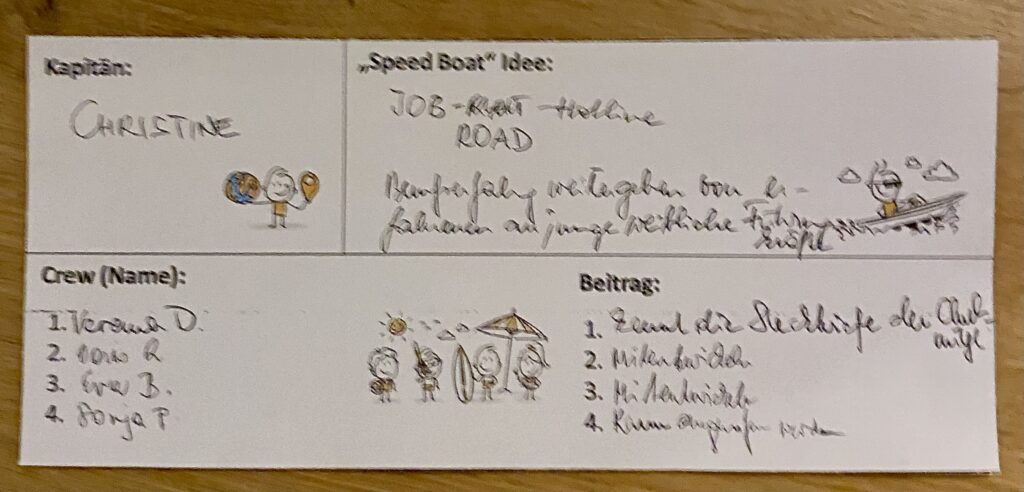 Kapitän:
CHRISTINE
„Speed Boat“ Idee:
JOB- -Hotline
ROAD
Berufserfahrg weitergeben von er-
fahrenen an junge weibliche Führungs
kräfte
Crew (Name):
1. Verena D.
2. R
3. Eva B.
4. Sonja P
Beitrag:
1. kennt die Steckbriefe der Club-
2. Mitentwickeln
3. Mitentwickeln
4. Kann angerufen werden